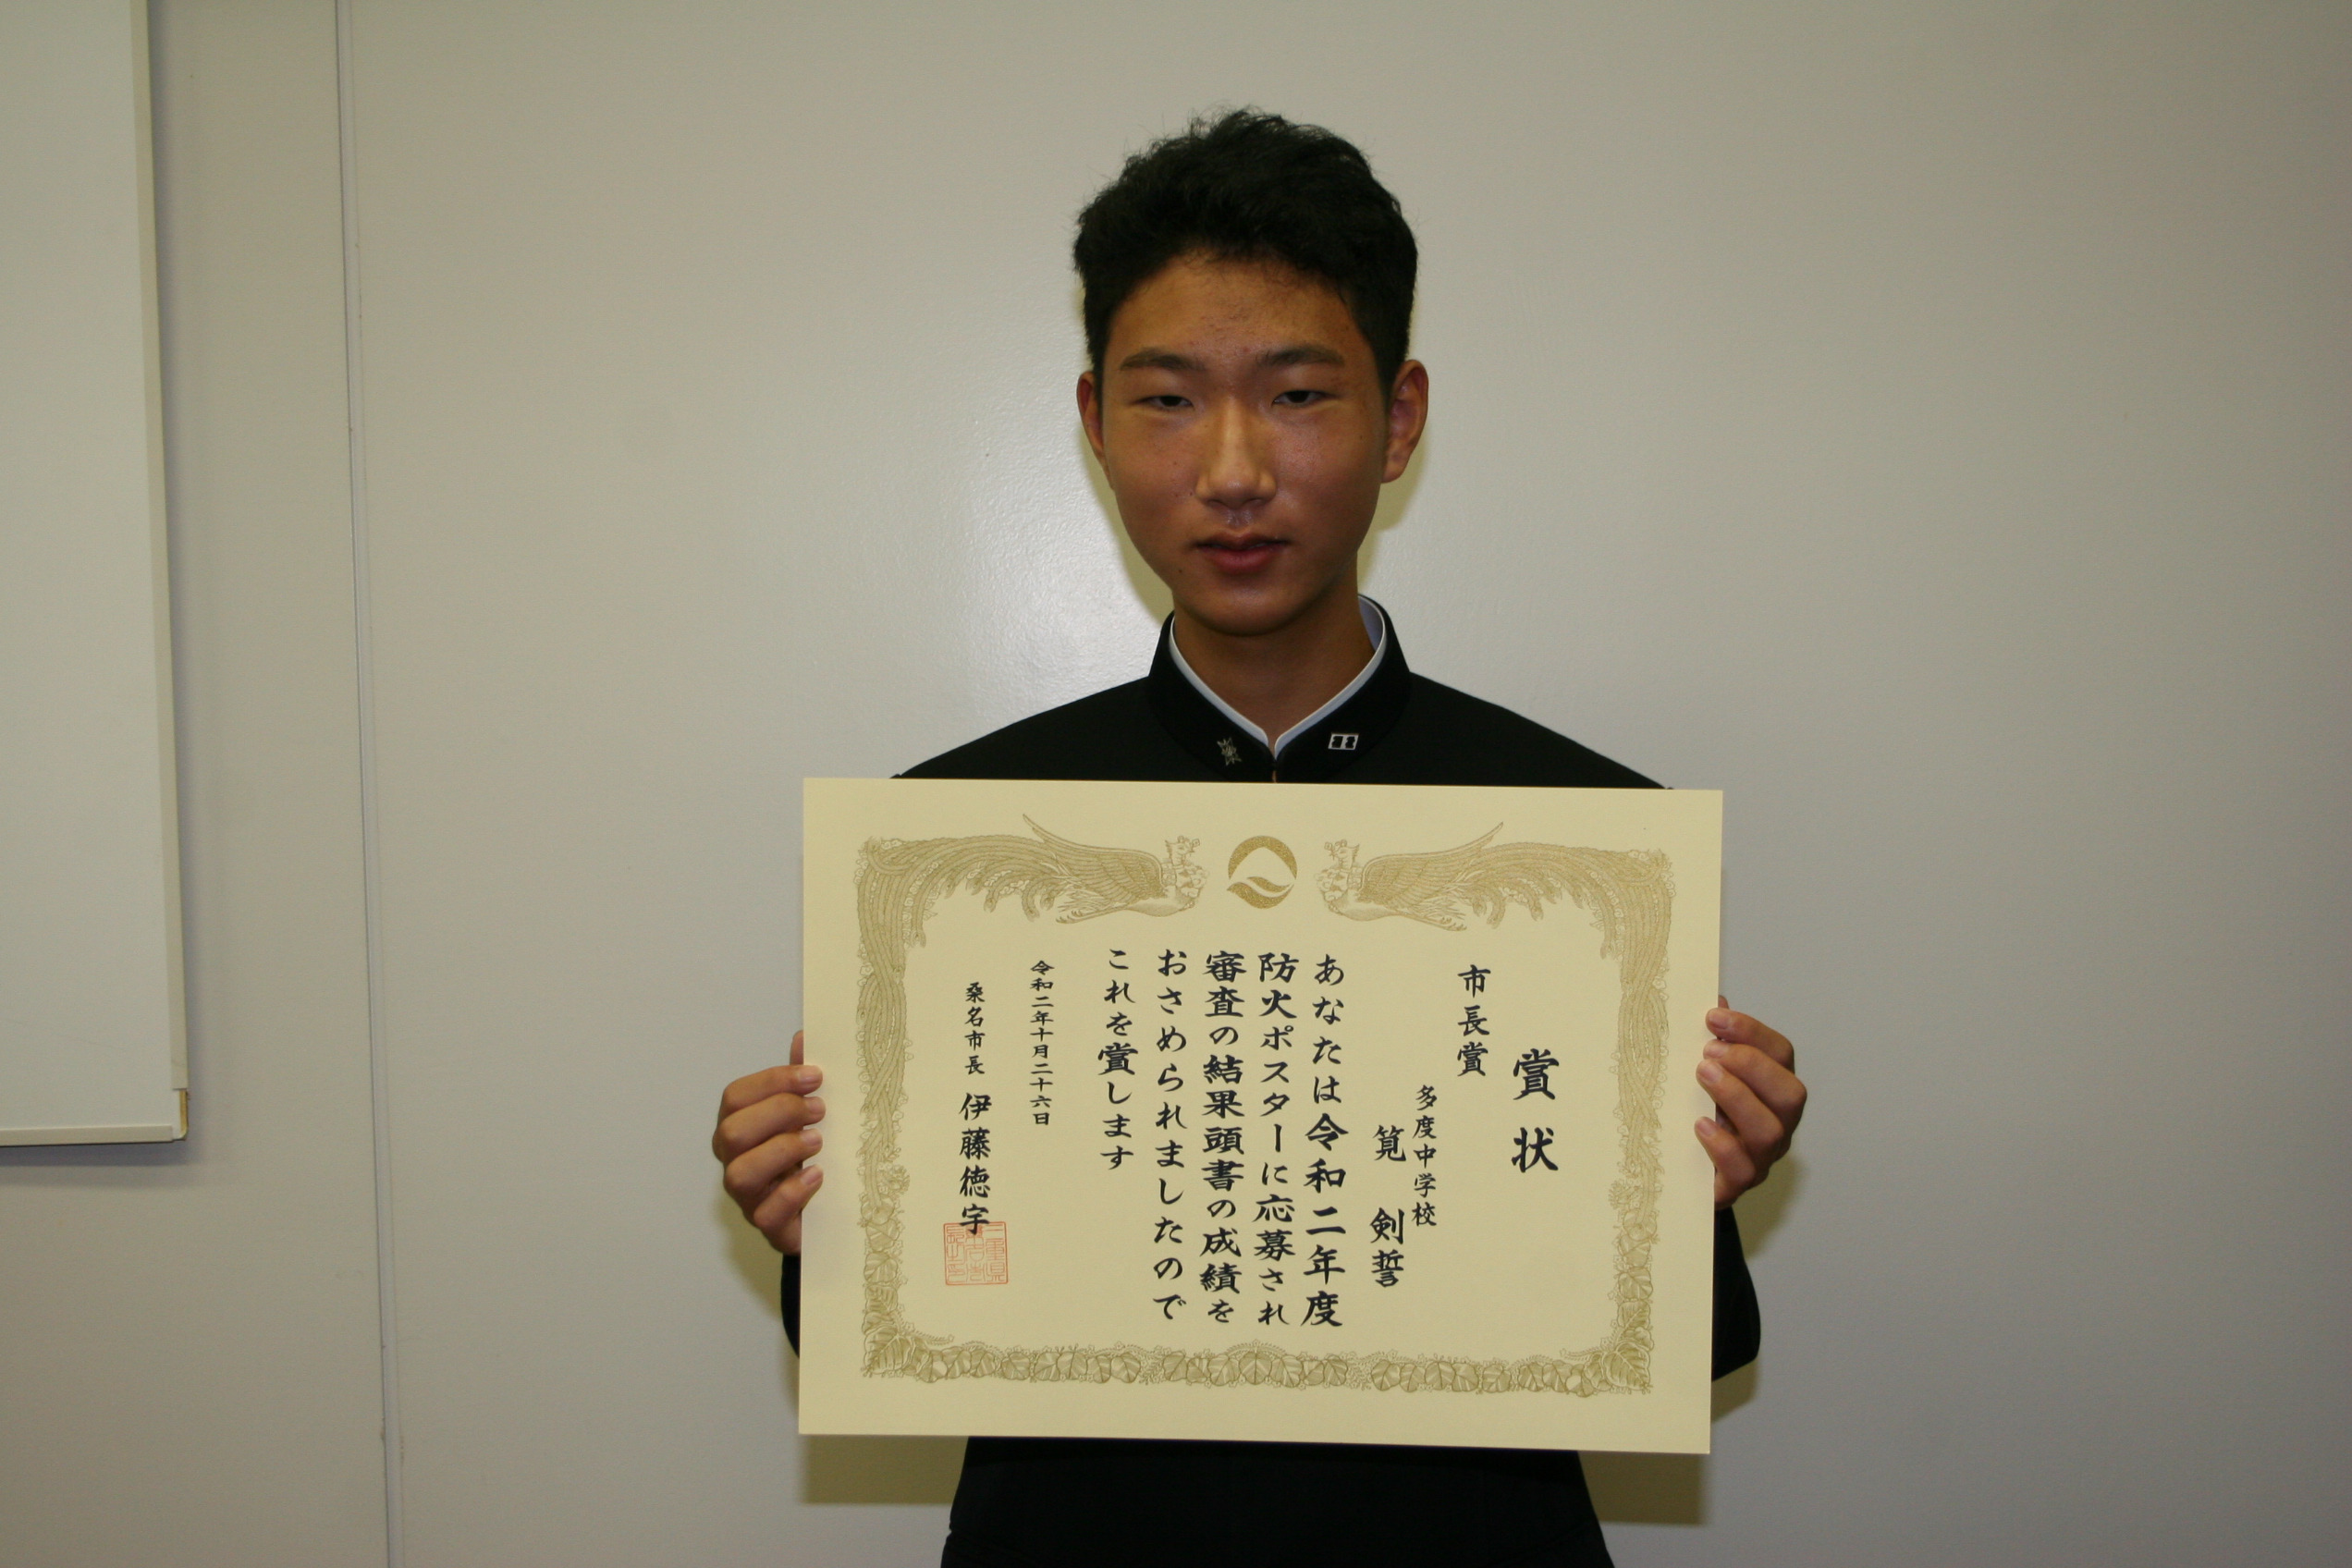 賞状
市長賞
多度中学校
筧 剣誓
あなたは令和二年度
防火ポスターに応募され
審査の結果頭書の成績を
おさめられましたので
これを賞します
令和二年十月二十六日
桑名市長 伊藤徳宇